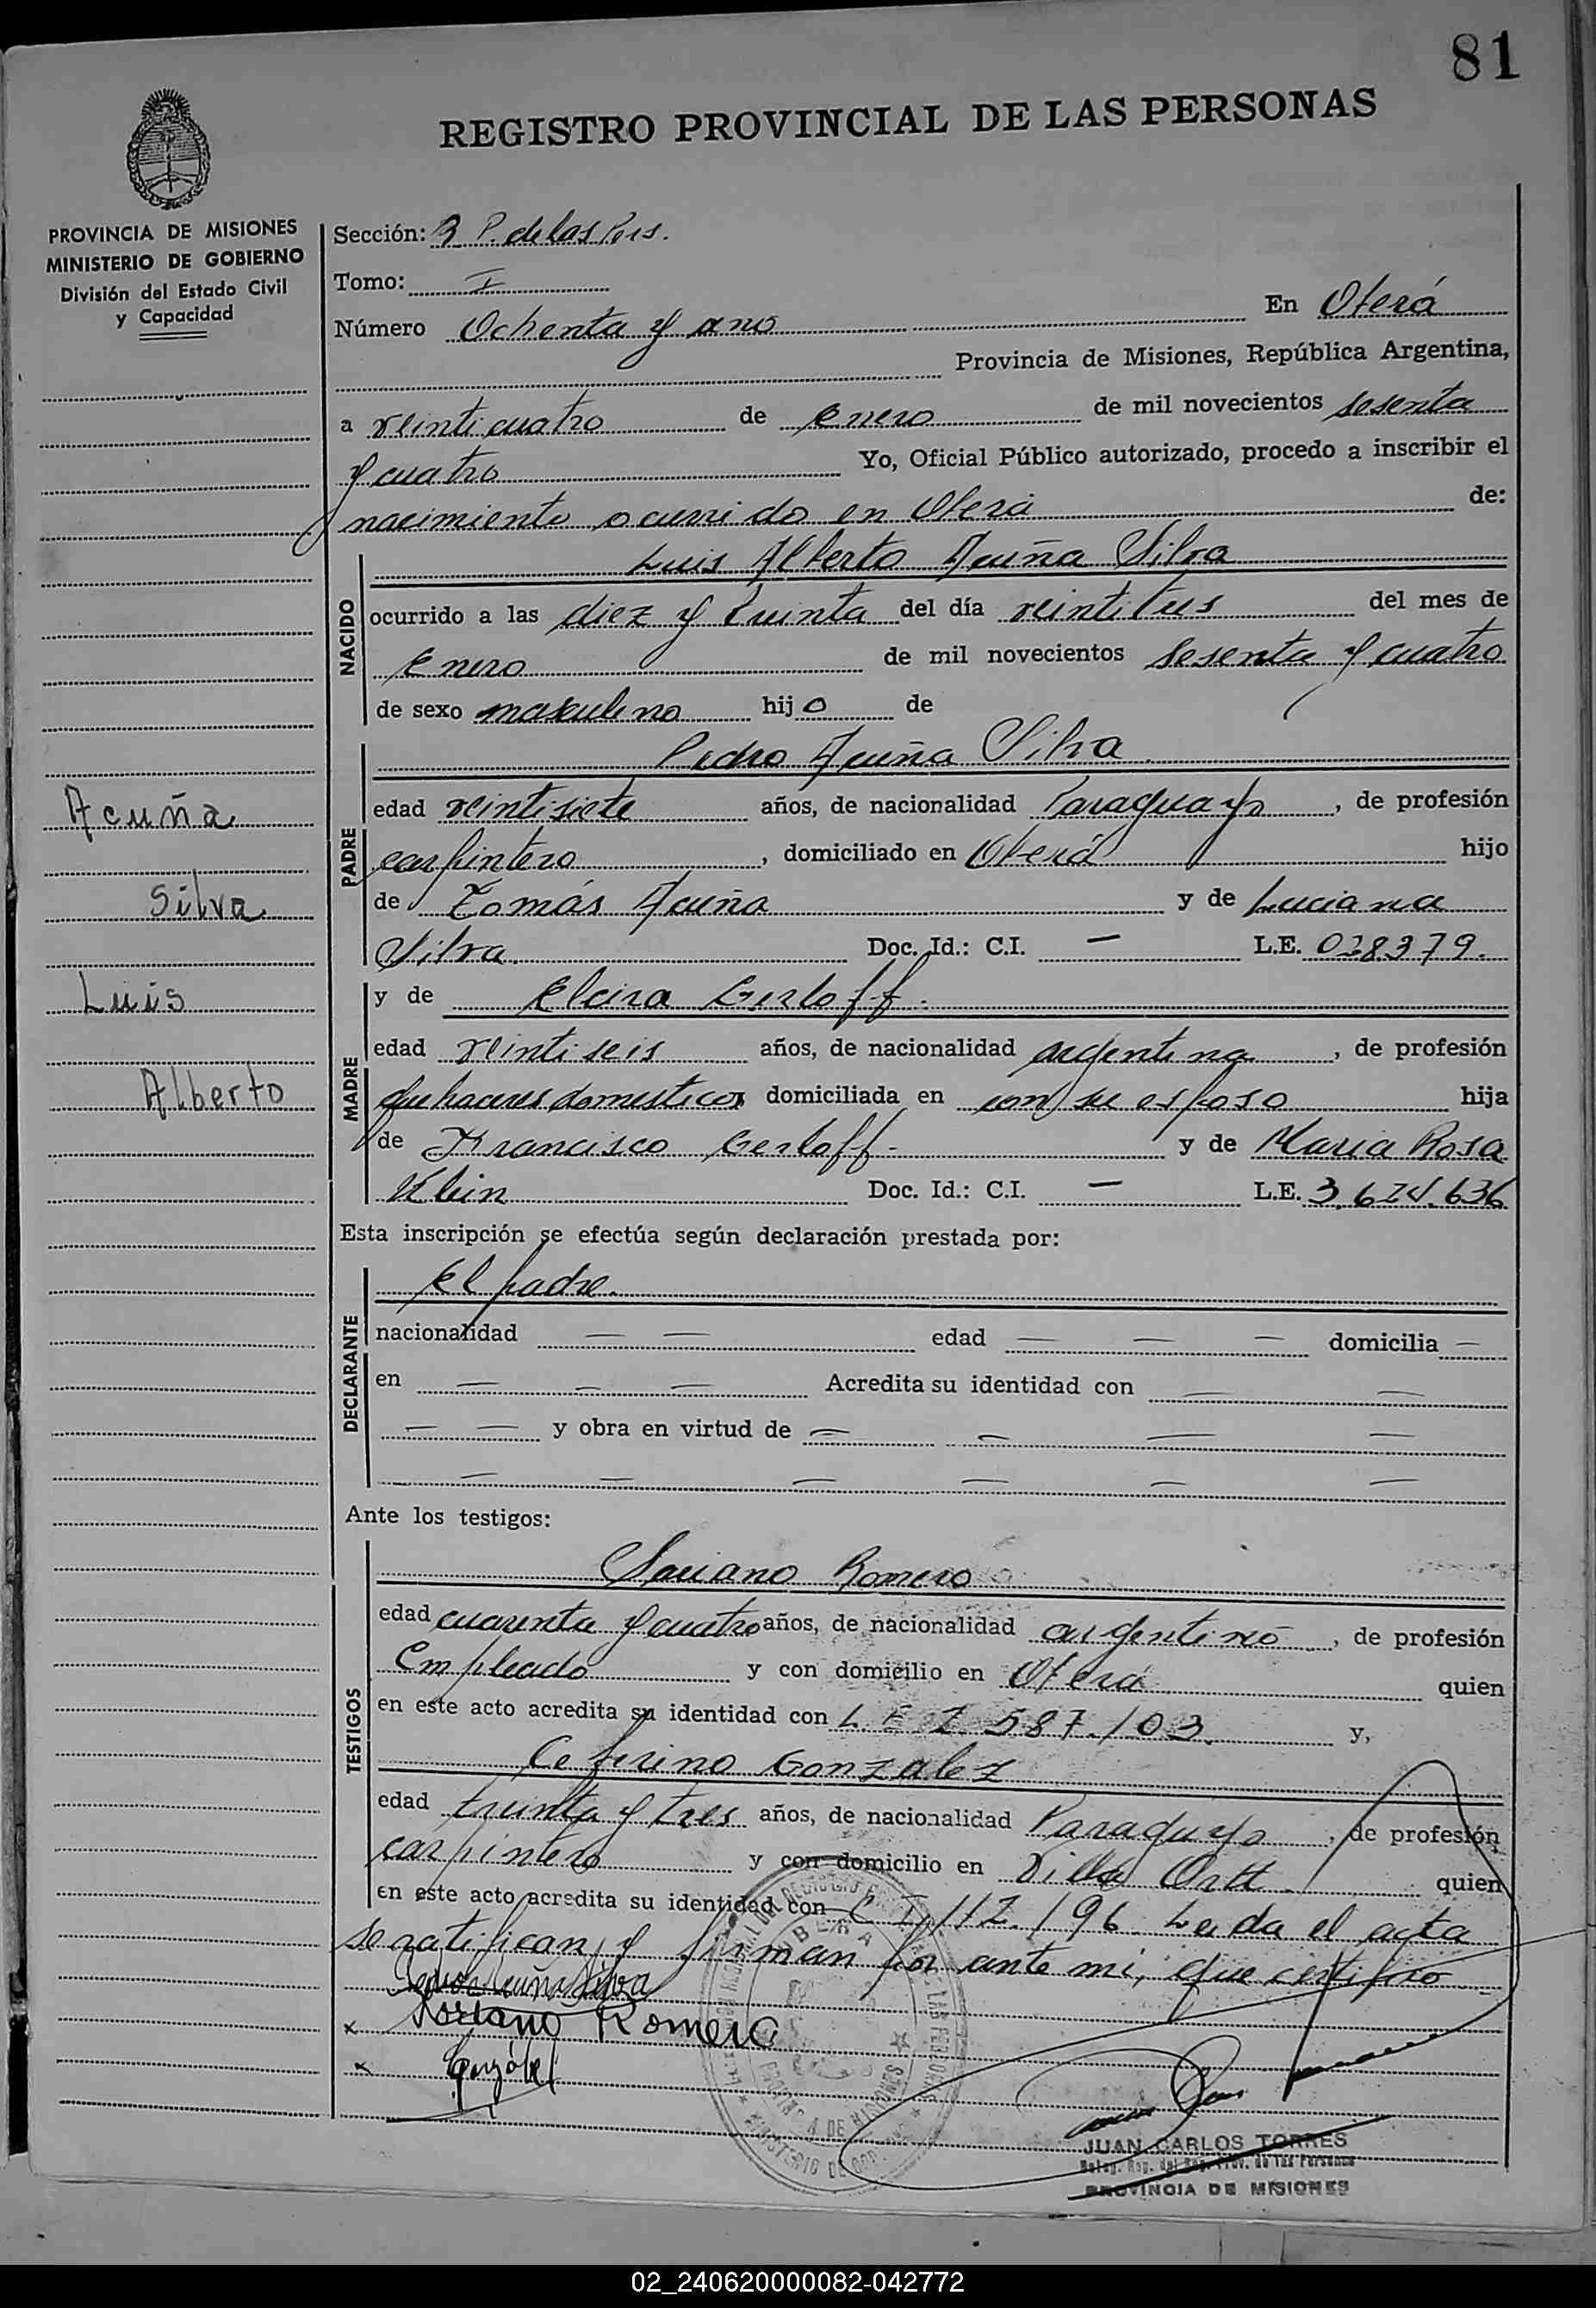 81
REGISTRO PROVINCIAL DE LAS PERSONAS
PROVINCIA DE MISIONES
MINISTERIO DE GOBIERNO
División del Estado Civil
y Capacidad
Sección: R P. de las Pers.
Tomo: I
Número Ochenta y uno En Oberá
Provincia de Misiones, República Argentina,
a veinticuatro de enero de mil novecientos sesenta
y cuatro Yo, Oficial Público autorizado, procedo a inscribir el
nacimiento ocurrido en Oberá de:
NACIDO
Luis Alberto Acuña Silva
ocurrido a las diez y treinta del día veintitres del mes de
Enero de mil novecientos sesenta y cuatro
de sexo masculino hijo de
PADRE
Pedro Acuña Silva
edad veintisiete años, de nacionalidad Paraguayo, de profesión
carpintero, domiciliado en Oberá hijo
de Tomás Acuña y de Luciana
Silva. Doc. Id.: C.I. — L.E. 028379.
MADRE
y de Elcira Gerloff.
edad veintiseis años, de nacionalidad argentina, de profesión
quehaceres domesticos domiciliada en con su esposo hija
de Francisco Gerloff y de Maria Rosa
Klein Doc. Id.: C.I. — L.E. 3.624.636
Acuña
Silva
Luis
Alberto
Esta inscripción se efectúa según declaración prestada por:
DECLARANTE
El padre.
nacionalidad — — edad — — — domicilia —
en — — — Acredita su identidad con — —
— — y obra en virtud de — — — —
— — — — — —
Ante los testigos:
TESTIGOS
Soriano Romero
edad cuarenta y cuatro años, de nacionalidad argentino, de profesión
Empleado y con domicilio en Oberá quien
en este acto acredita su identidad con L. E 587.103. y,
Ceferino Gonzalez
edad treinta y tres años, de nacionalidad Paraguayo, de profesión
carpintero y con domicilio en Villa Ortt. quien
en este acto acredita su identidad con C I 112.196 Leida el acta
se ratifican y firman por ante mi, que certifico
Pedro Acuña Silva
x Soriano Romero
x González
OBERA
PROVINCIA DE MISIONES
MINISTERIO DE GOBIERNO
JUAN CARLOS TORRES
Prov. de las Personas
PROVINCIA DE MISIONES
02_240620000082-042772